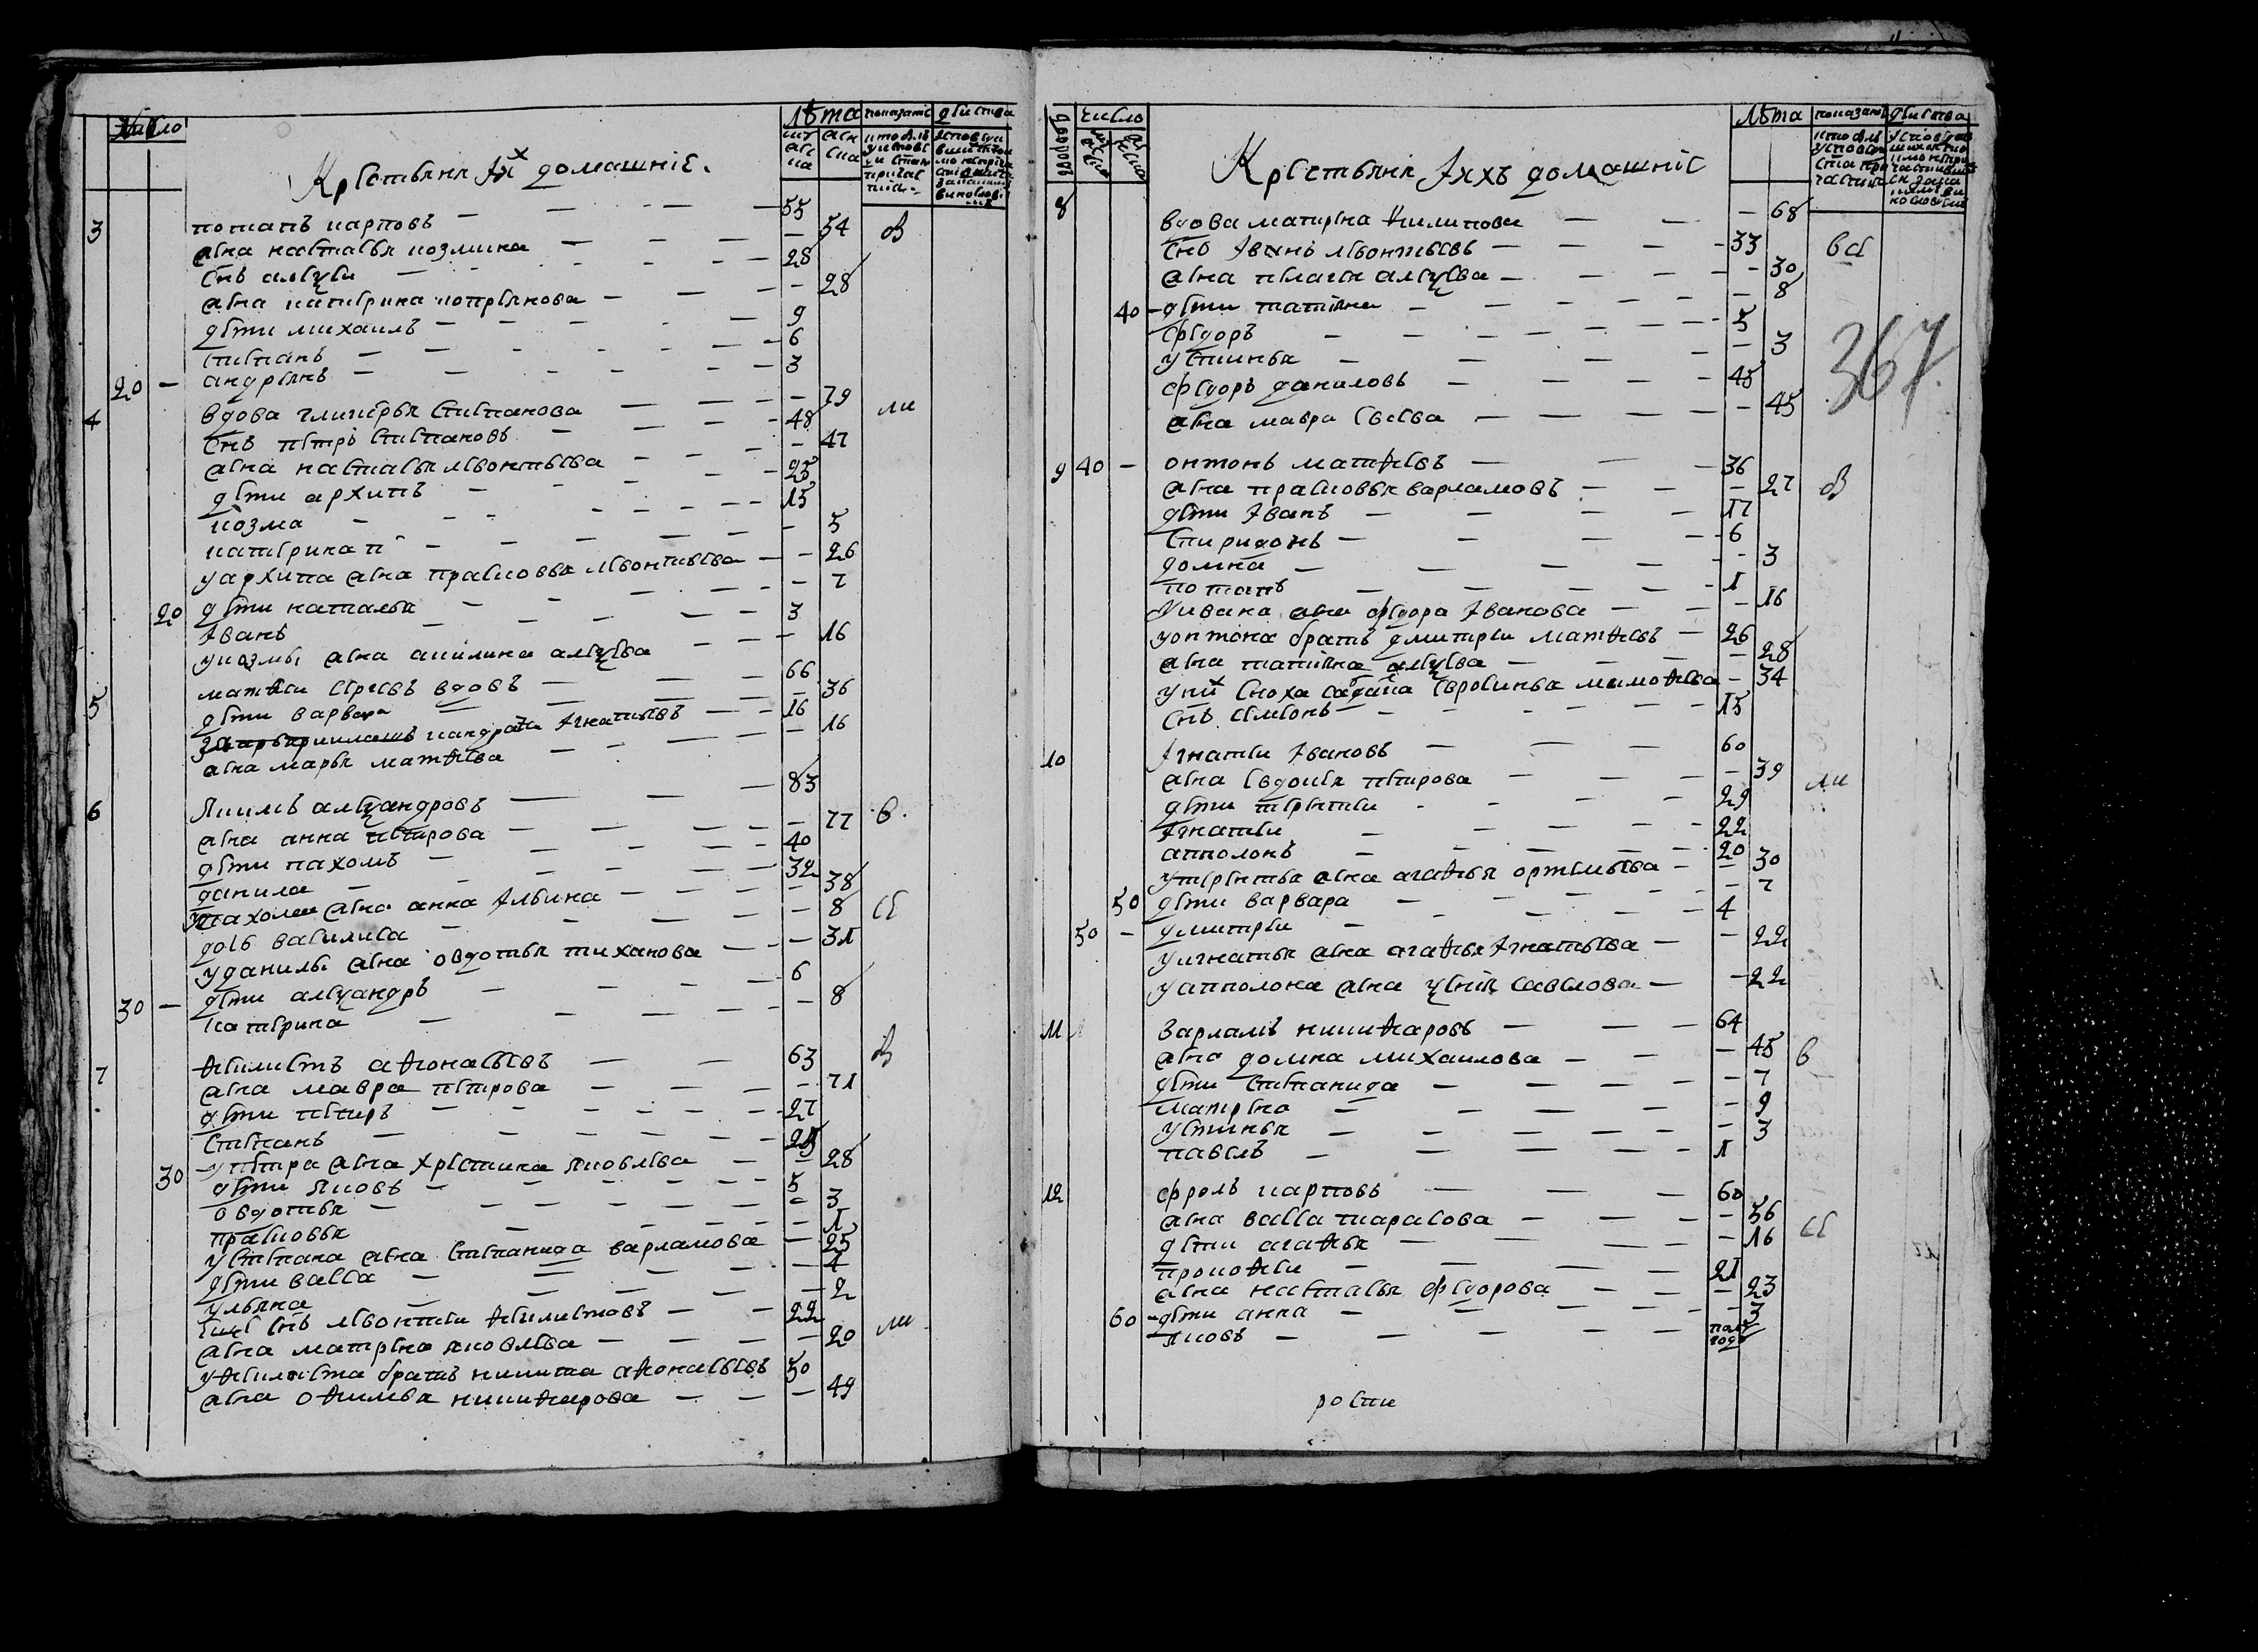 Число
Лѣта показанъ дѣиства
Крестьяня Их домашніе.
3 потапъ карповъ — 55
жена настасья козмина — 54
снъ алеѯеи — 28
жена катерина копреянова — 28
дѣти михаилъ — 9
степанъ — 6
20 — андреянъ — 3
4 вдова гликерья степанова — 79
снъ петръ степановъ — 48
жена настасья леонтьева — 47
дѣти архипъ — 25
козма — 15
катерина — 5
у архипа жена прасковья леонтьева — 26
20 дѣти наталья — 7
Iванъ — 3
у козмы жена акилина алеѯева — 16
5 матѳеи сергеевъ вдовъ — 66
дѣти варвара — 36
кандратеи Iгнатьевъ — 16
жена марья матѳеева — 16
6 Якимъ алеѯандровъ — 83
жена анна петрова — 77
дѣти пахомъ — 40
данила — 32
у пахома жена анна Iльина — 38
дочь василиса — 8
у данилы жена овдотья тиханова — 31
30 — дѣти алеѯандръ — 6
катерина — 8
7 ѳилистъ аѳонасьевъ — 63
жена мавра петрова — 71
дѣти петръ — 27
степанъ — 25
у петра жена христина яковлева — 28
30 дѣти яковъ — 5
овдотья — 3
прасковья — 1
у степана жена степанида варламова — 25
дѣти васса — 4
ульяна — 2
еще снъ леонтеи ѳилистовъ — 22
жена матрена яковлева — 20
у ѳилиста братъ никита аѳонасьевъ 50
жена оѳимья никиѳорова — 49
дворовъ число
Лѣта показанъ дѣиства
Крестьяня Iхъ домашніе
8 вдова матрена ѳилипова — 68
снъ Iванъ леонтьевъ — 33
жена пелагея алеѯева — 30
40 — дѣти татіяна — 8
ѳедоръ — 5
устинья — 3
ѳедоръ даниловъ — 45
жена мавра евсева — 45
367
9 40 — онтонъ матѳеевъ — 36
жена прасковья варламовъ — 27
дѣти Iванъ — 17
спиридонъ — 6
домна — 3
потапъ — 1
у ивана жена ѳедора Iванова — 16
у онтона братъ дмитреи матѳеевъ — 26
жена татіяна алеѯева — 28
у них сноха солдатка евросинья тимоѳеева — 34
снъ семенъ — 15
10 Iгнатеи Iвановъ — 60
жена евдокия петрова — 39
дѣти терентеи — 29
Iгнатеи — 22
апполонъ — 20
у терентья жена агаѳья ортемьева — 30
50 дѣти варвара — 7
50 — дмитреи — 4
у игнатья жена агаѳья Iгнатьева — 22
у апполона жена ѯения савелова — 22
11 варламъ никиѳаровъ — 64
жена домна михаилова — 45
дѣти степанида — 7
матрена — 9
устинья — 3
павелъ — 1
12 ѳролъ карповъ — 60
жена васса тарасова — 56
дѣти агаѳья — 16
прокоѳеи — 21
жена настасья ѳедорова — 23
60 — дѣти анна — 3
яковъ — пол года
роспи